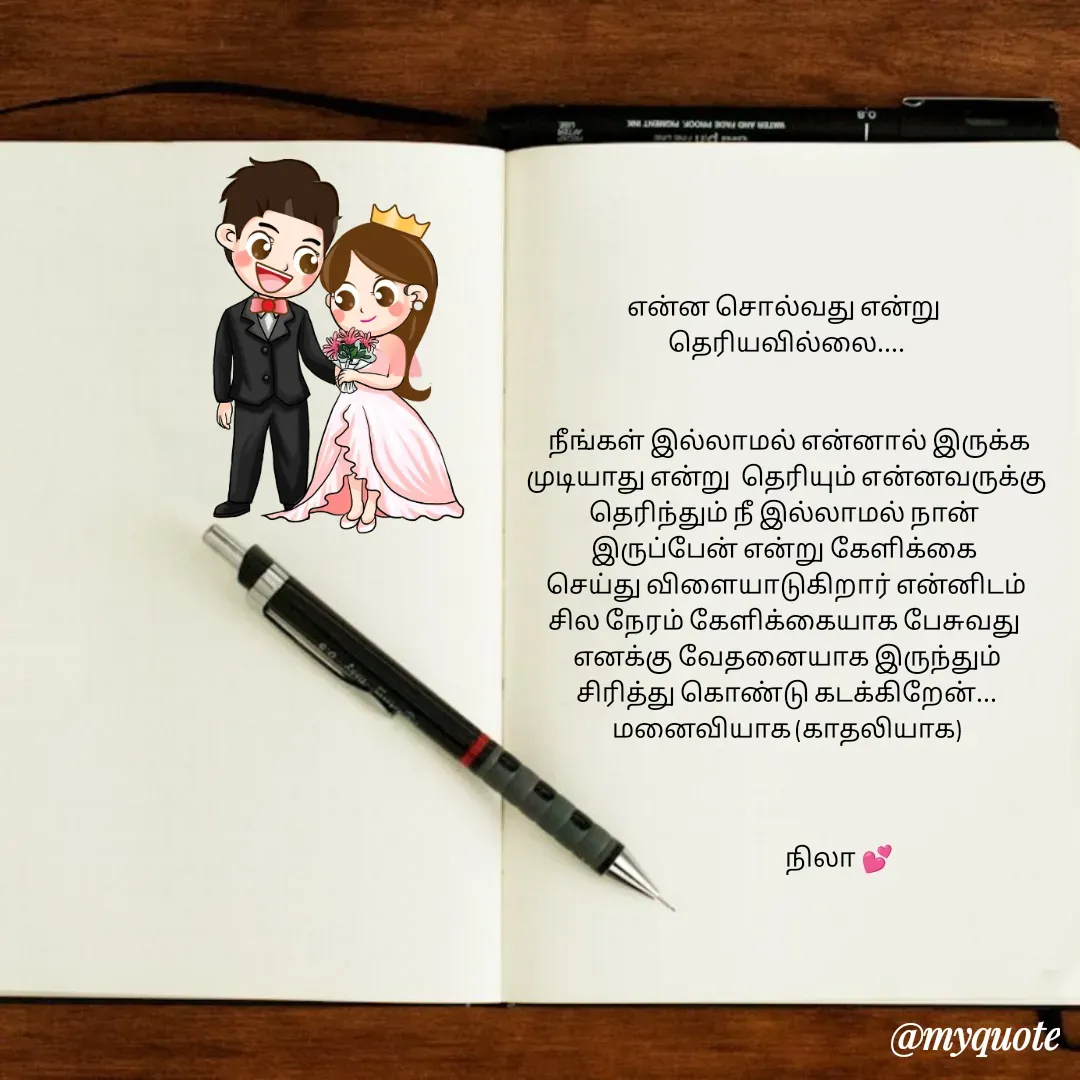 என்ன சொல்வது என்று
தெரியவில்லை....
நீங்கள் இல்லாமல் என்னால் இருக்க
முடியாது என்று தெரியும் என்னவருக்கு
தெரிந்தும் நீ இல்லாமல் நான்
இருப்பேன் என்று கேளிக்கை
செய்து விளையாடுகிறார் என்னிடம்
சில நேரம் கேளிக்கையாக பேசுவது
எனக்கு வேதனையாக இருந்தும்
சிரித்து கொண்டு கடக்கிறேன்...
மனைவியாக (காதலியாக)
நிலா 💕
WATER AND FADE PROOF, PIGMENT INK
0.8
@myquote